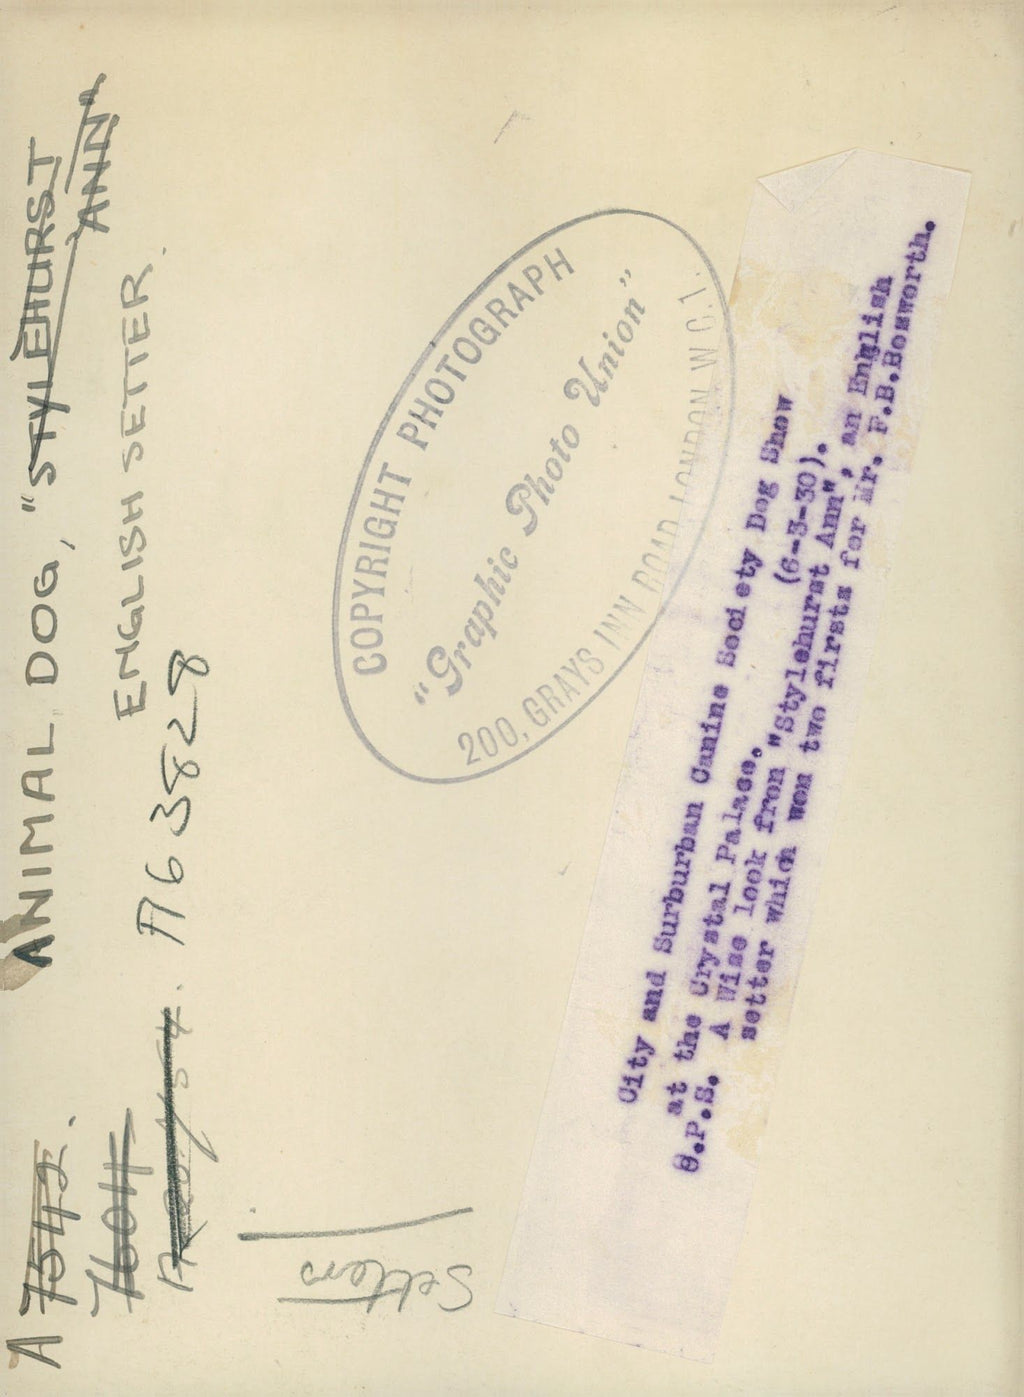 ANIMAL DOG, "STYLEHURST
ANN"
ENGLISH SETTER.
A 7542.
7604
A63828
Setters
COPYRIGHT PHOTOGRAPH
"Graphic Photo Union"
200, GRAYS INN ROAD LONDON W.C.1.
City and Surburban Canine Society Dog Show
at the Crystal Palace. (6-3-30).
O.P.S. A Wise look from "Stylehurst Ann", an English
setter which won two firsts for Mr. F.B.Bosworth.